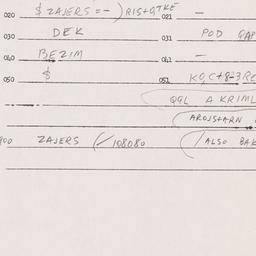 020 $ ZAJERS = - ) RIS+GTKE 021 -
030 DEK 031 POD GAP
040 BEZIM 041 -
050 $ 051 KGC+8-3RC
QGL A KRIML
AROJS+ARN
900 ZAJERS 108080 / ALSO BAK